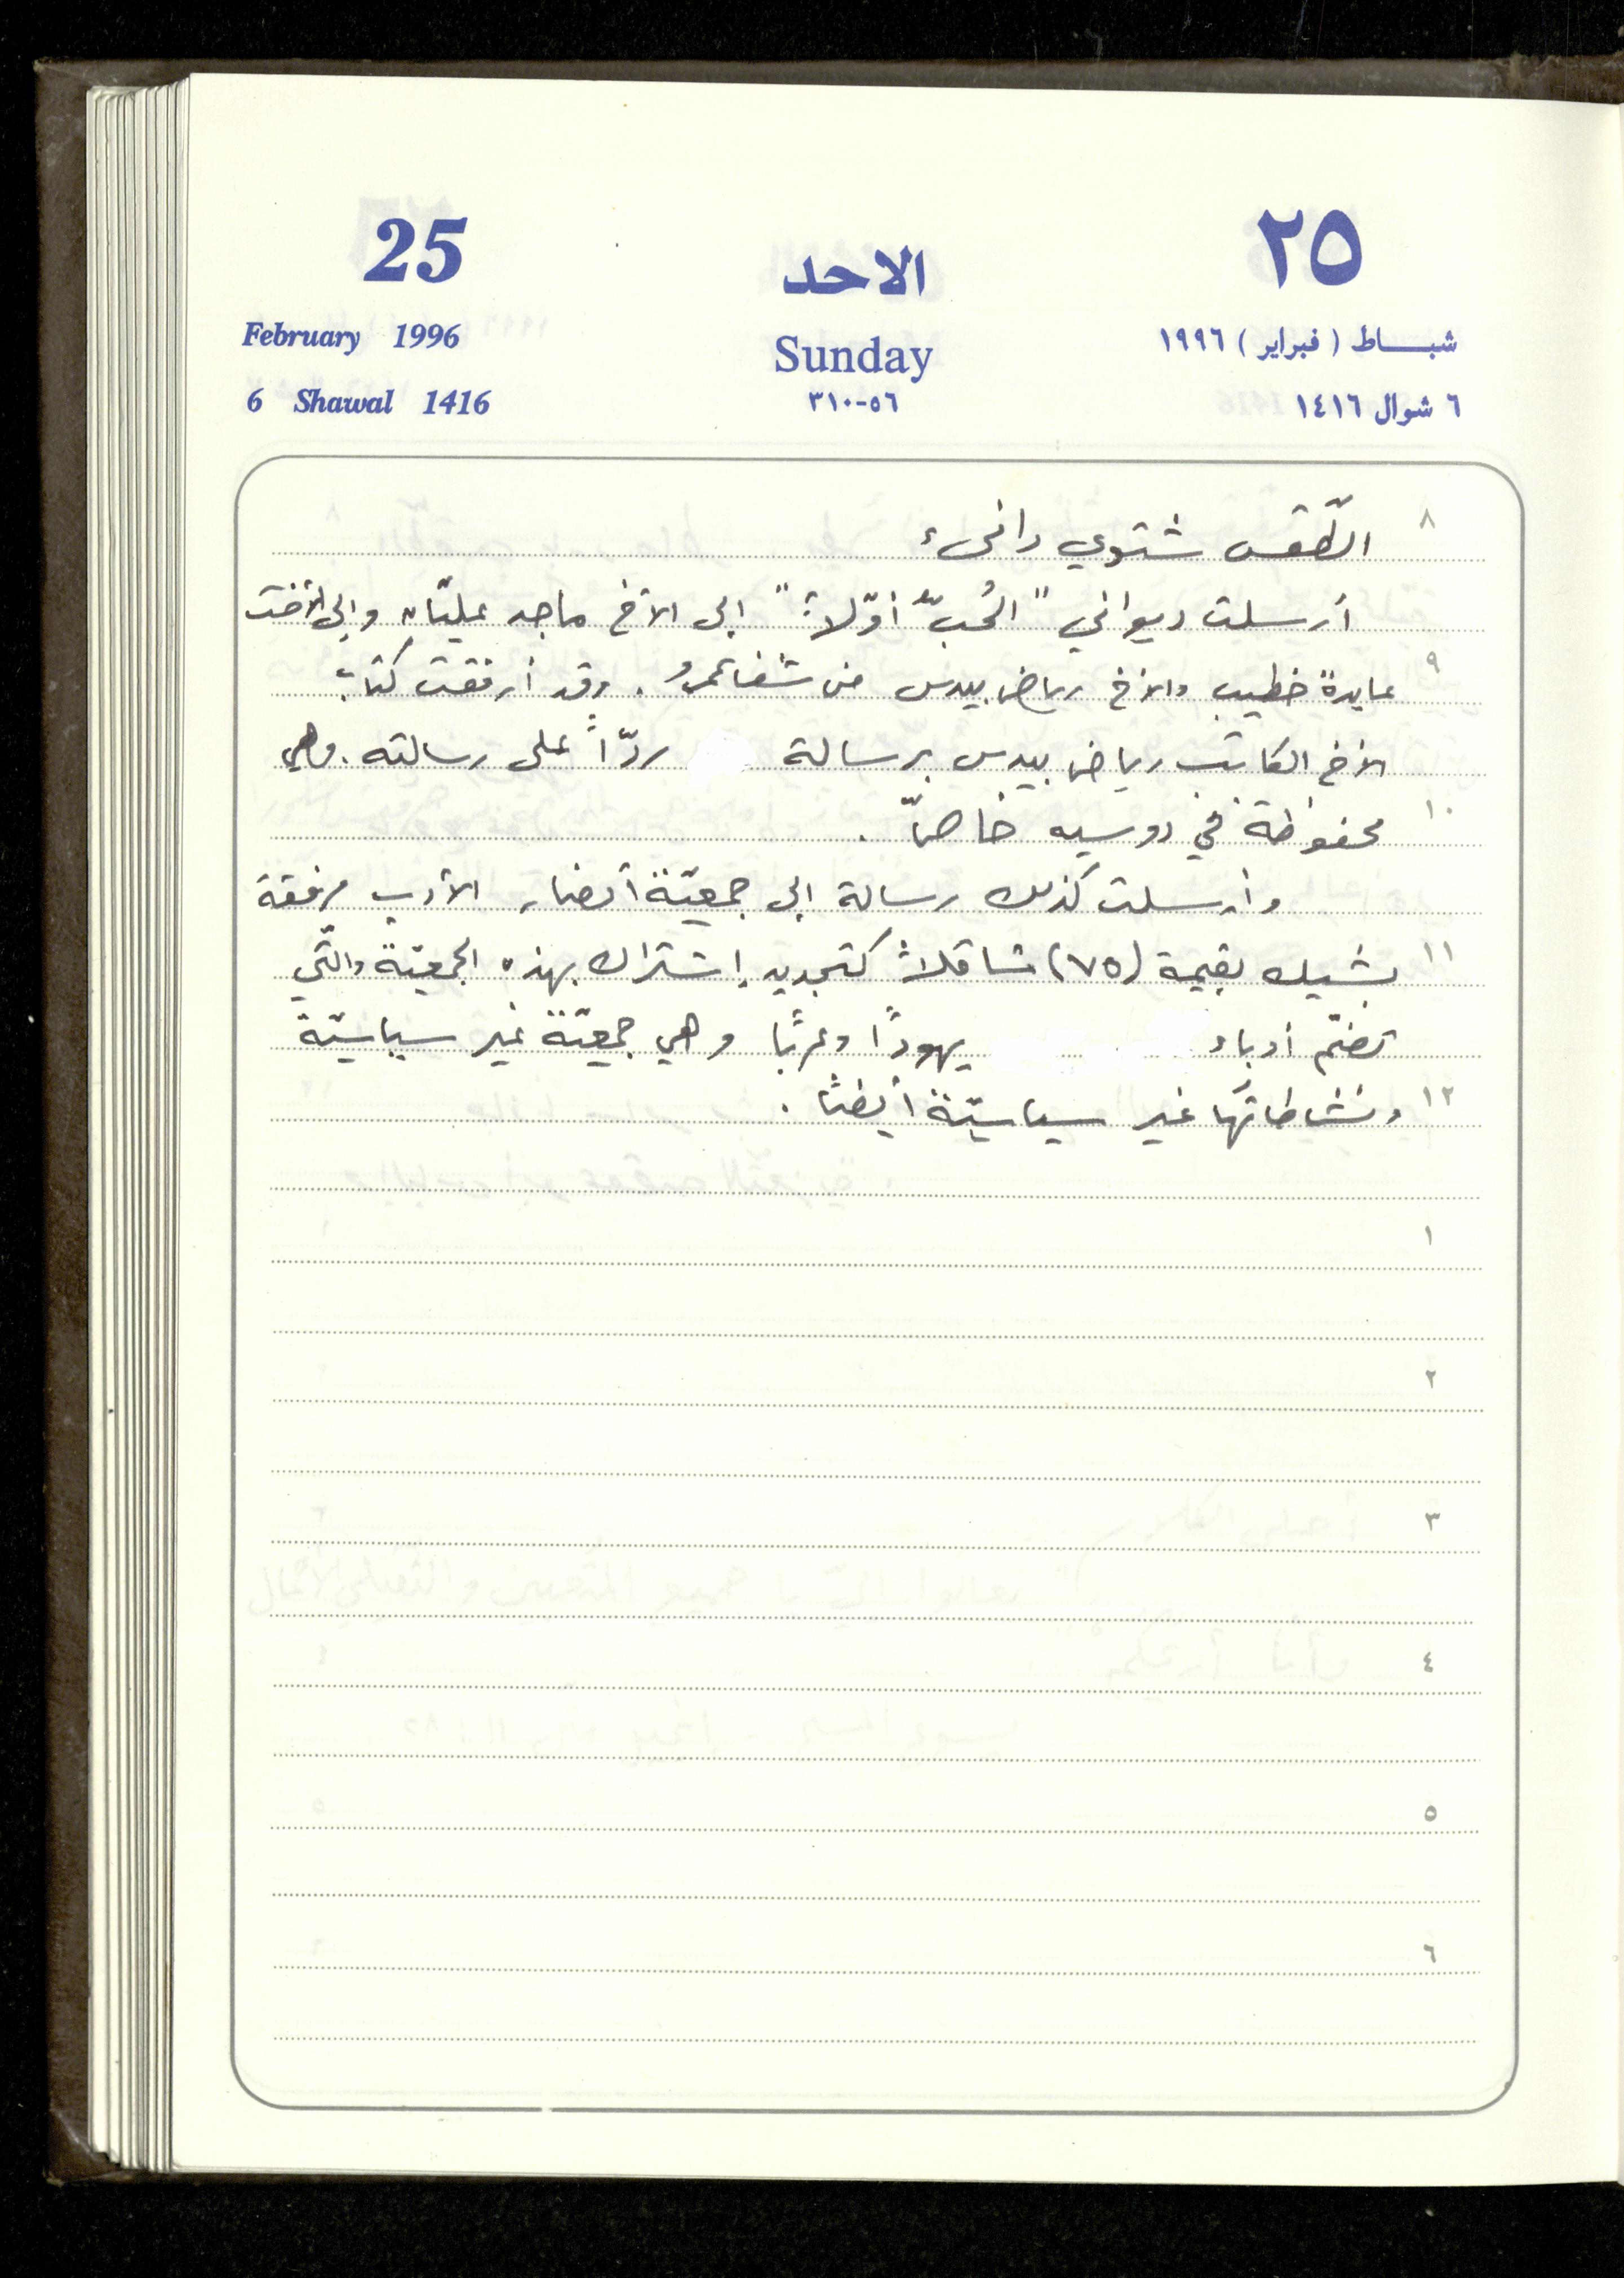 25 الاحد ٢٥
February 1996 Sunday شبـــاط ( فبراير ) ١٩٩٦
6 Shawal 1416 ٥٦-٣١٠ ٦ شوال ١٤١٦
٨ الطّقس شتوي دافىء
أرسلت ديواني "الحُبّ أوّلاً" إلى الأخ ماجد عليّان وإلى الأخت
٩ عايدة خطيب والأخ رياض بيدس من شفاعمرو. وقد أرفقت كتاب
الأخ الكاتب رياض بيدس برسالة ردّاً على رسالته. وهي
١٠ محفوظة في دوسيه خاصّ.
وأرسلت كذلك رسالة إلى جمعيّة أنصار الأدب مرفقة
١١ بشيك بقيمة (٧٥) شاقلاً كتجديد إشتراك بهذه الجمعيّة والتّي
تضمّ أدباء يهودًا وعربًا وهي جمعيّة غير سياسيّة
١٢ ونشاطاتها غير سياسيّة أيضًا.
١
٢
٣
٤
٥
٦